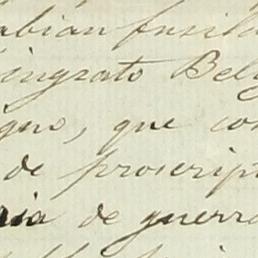 abian fusila
ingrato Belg
igno, que con
de proscript
ria de guerra